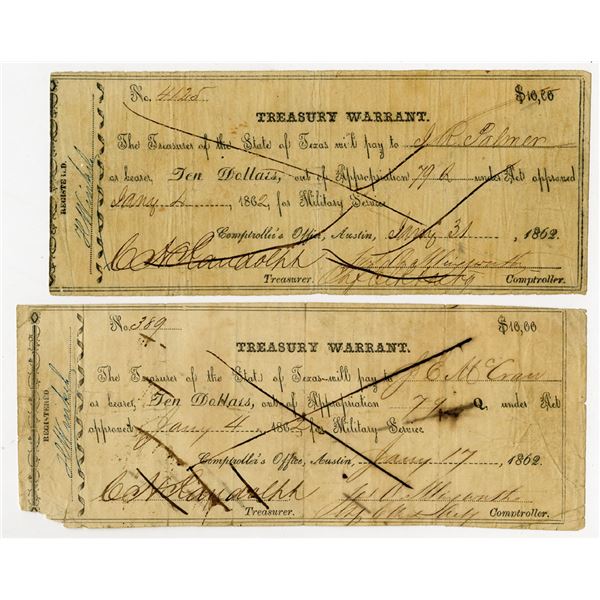 No. 4125 $10,00
TREASURY WARRANT.
The Treasurer of the State of Texas will pay to J. R. Palmer
or bearer, Ten Dollars, out of Appropriation 79 Q under Act approved
Jany 4, 1862, for Military Service
Comptroller's Office, Austin, May 31, 1862.
C H Randolph
Treasurer. Comptroller.
REGISTERED.
No. 389 $10,00
TREASURY WARRANT.
The Treasurer of the State of Texas will pay to J C McCraw
or bearer, Ten Dollars, out of Appropriation 79 Q, under Act
approved Jany 4, 1862 for Military Service
Comptroller's Office, Austin, Jany 17, 1862.
C H Randolph
Treasurer. Comptroller.
REGISTERED